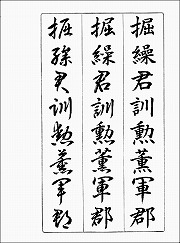 掘繰君訓勲薫軍郡
掘繰君訓勲薫軍郡
掘繰君訓勲薫軍郡